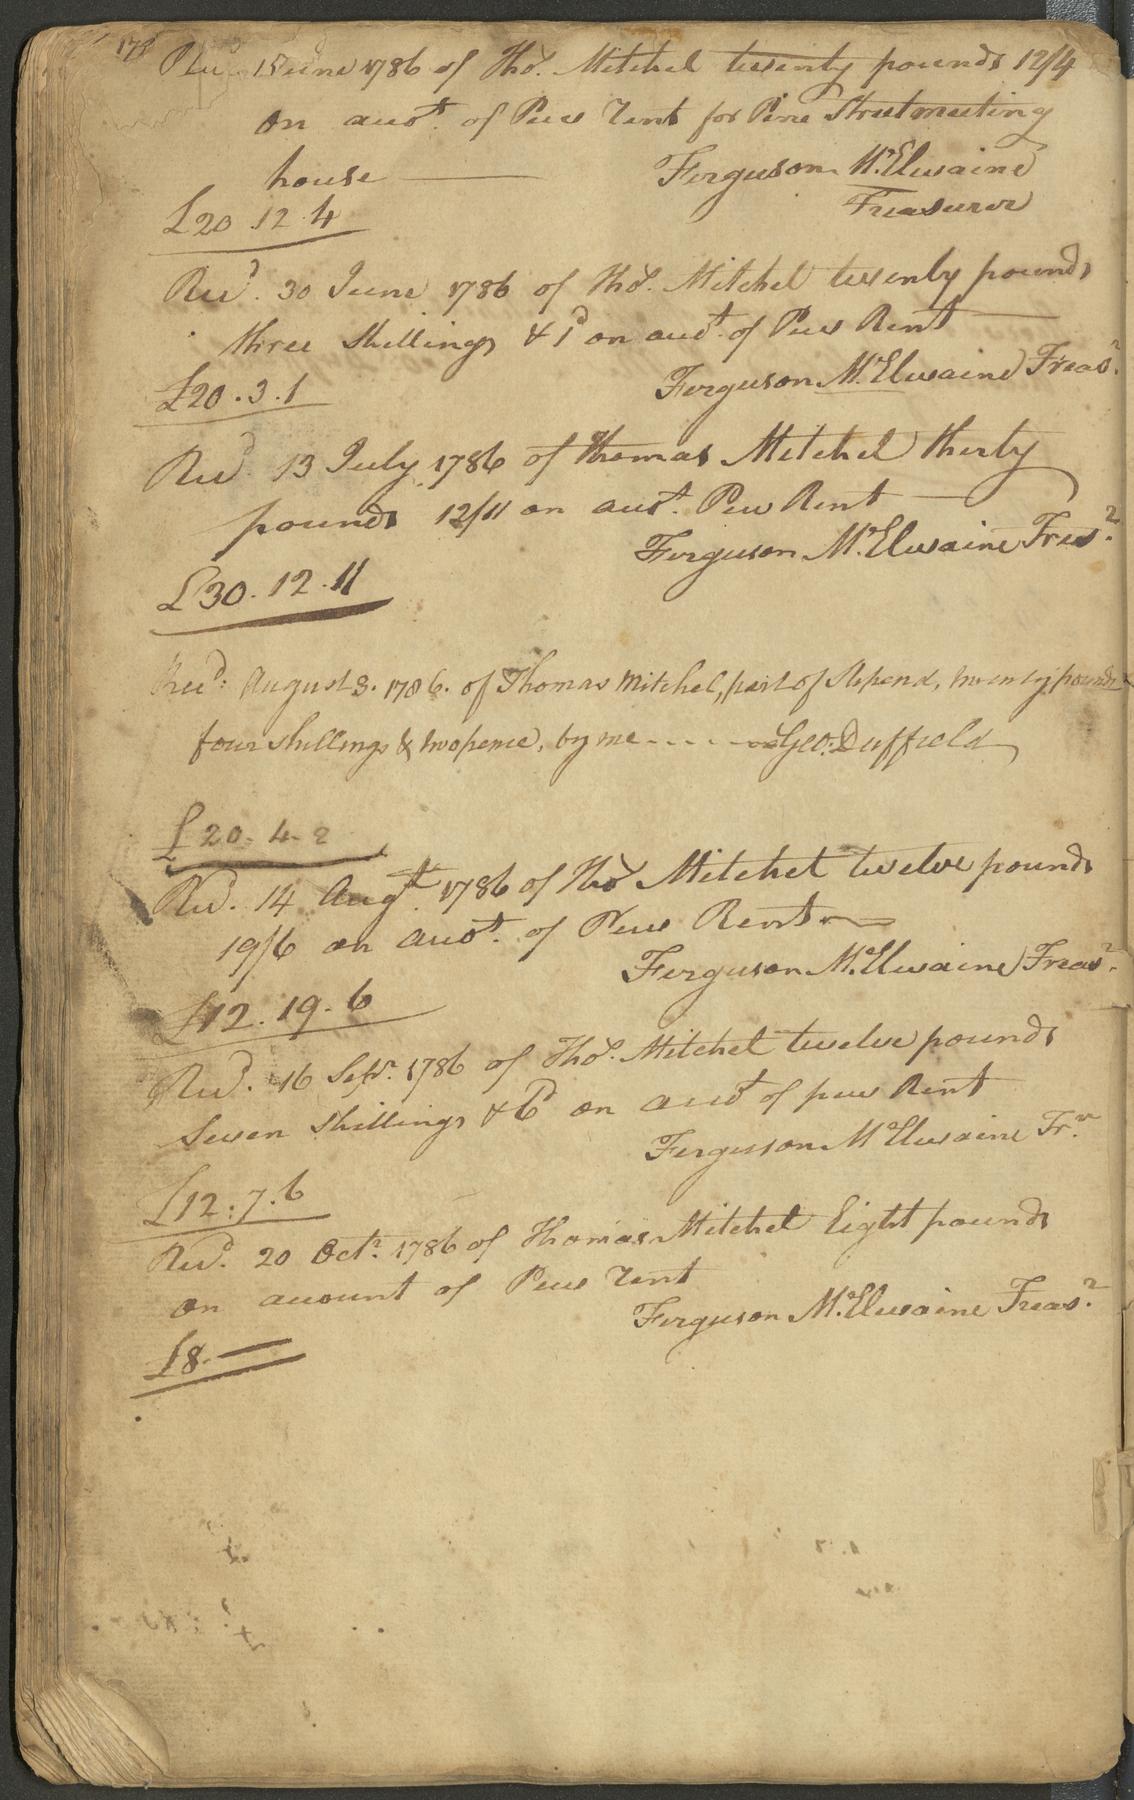 Recd. 15 June 1786 of Thos. Mitchel twenty pounds 12/4
on accot. of Pew Rent for Pine Street meeting
house Ferguson McElwaine
£20.12.4 Treasurer
Recd. 30 June 1786 of Thos. Mitchel twenty pounds
three Shillings & 1d on accot. of Pew Rent
£20.3.1 Ferguson McElwaine Treasr.
Recd. 13 July 1786 of Thomas Mitchel thirty
pounds 12/11 on accot. Pew Rent
Ferguson McElwaine Treasr.
£30.12.11
Recd: August 3. 1786. of Thomas Mitchel, part of Stipend, twenty pounds
four shillings & twopence, by me - - - - Geo: Duffield
£20.4.2
Recd. 14 Augt. 1786 of Thos Mitchel twelve pounds
19/6 on accot. of Pew Rent
Ferguson McElwaine Treasr.
£12.19.6
Recd. 16 Sepr. 1786 of Thos. Mitchel twelve pounds
Seven Shillings & 6d on accot of pew Rent
Ferguson McElwaine Tr.r
£12.7.6
Recd. 20 Octr. 1786 of Thomas Mitchel Eight pounds
on account of Pew Rent
Ferguson McElwaine Treasr.
£8.—